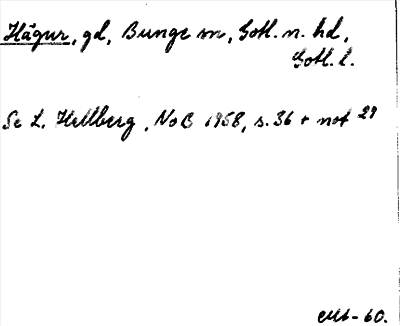 Hägur, gd, Bunge sn, Gotl. n. hd,
Gotl. l.
Se L. Hellberg, NoB 1958, s. 36 + not 29